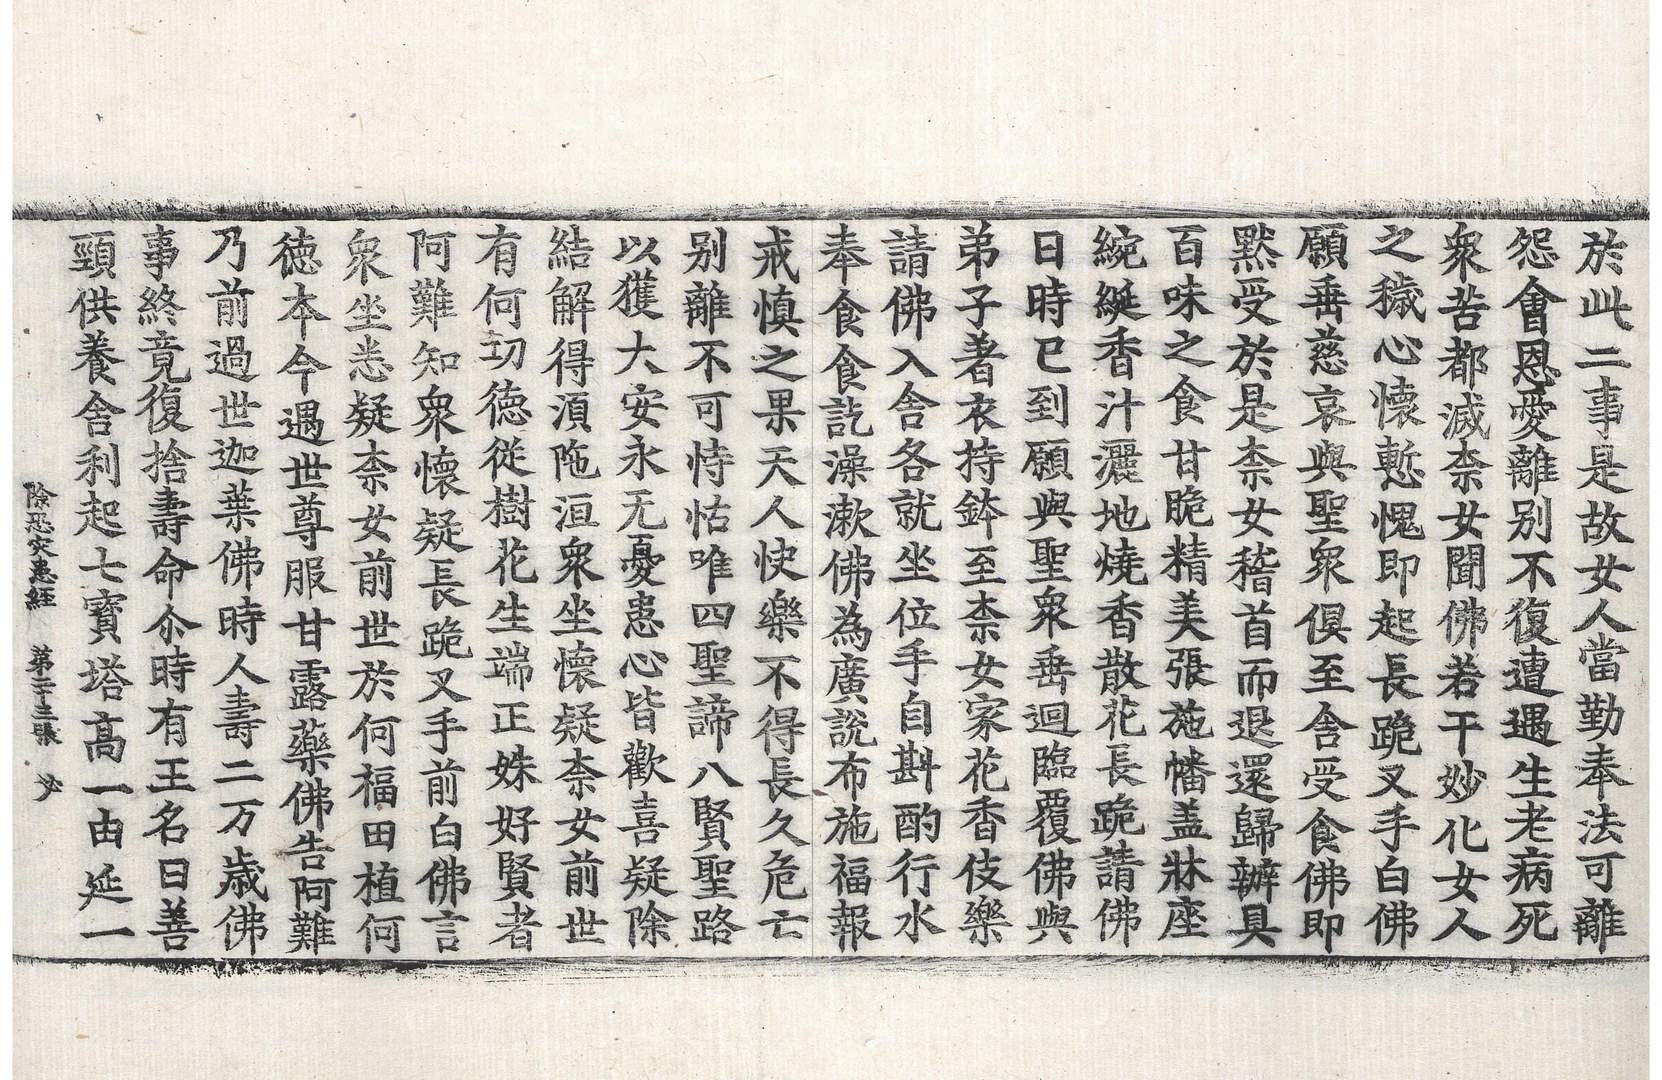 於此二事是故女人當勤奉法可離
怨會恩愛離別不復遭遇生老病死
衆苦都滅柰女聞佛若干妙化女人
之穢心懷慙愧即起長跪叉手白佛
願垂慈哀與聖衆俱至舍受食佛即
默受於是柰女稽首而退還歸辦具
百味之食甘脆精美張施幡盖牀座
綩綖香汁灑地燒香散花長跪請佛
日時已到願與聖衆垂迴臨覆佛與
弟子著衣持鉢至柰女家花香伎樂
請佛入舍各就坐位手自斟酌行水
奉食食訖澡漱佛為廣說布施福報
戒慎之果天人快樂不得長久危亡
別離不可恃怙唯四聖諦八賢聖路
以獲大安永无憂患心皆歡喜疑除
結解得湏陁洹衆坐懷疑柰女前世
有何功德從樹花生端正姝好賢者
阿難知衆懷疑長跪叉手前白佛言
衆坐悉疑柰女前世於何福田植何
德本今遇世尊服甘露藥佛告阿難
乃前過世迦葉佛時人壽二万歲佛
事終竟復捨壽命尒時有王名曰善
頸供養舍利起七寶塔高一由延一
除恐灾患經 第二十三張 少